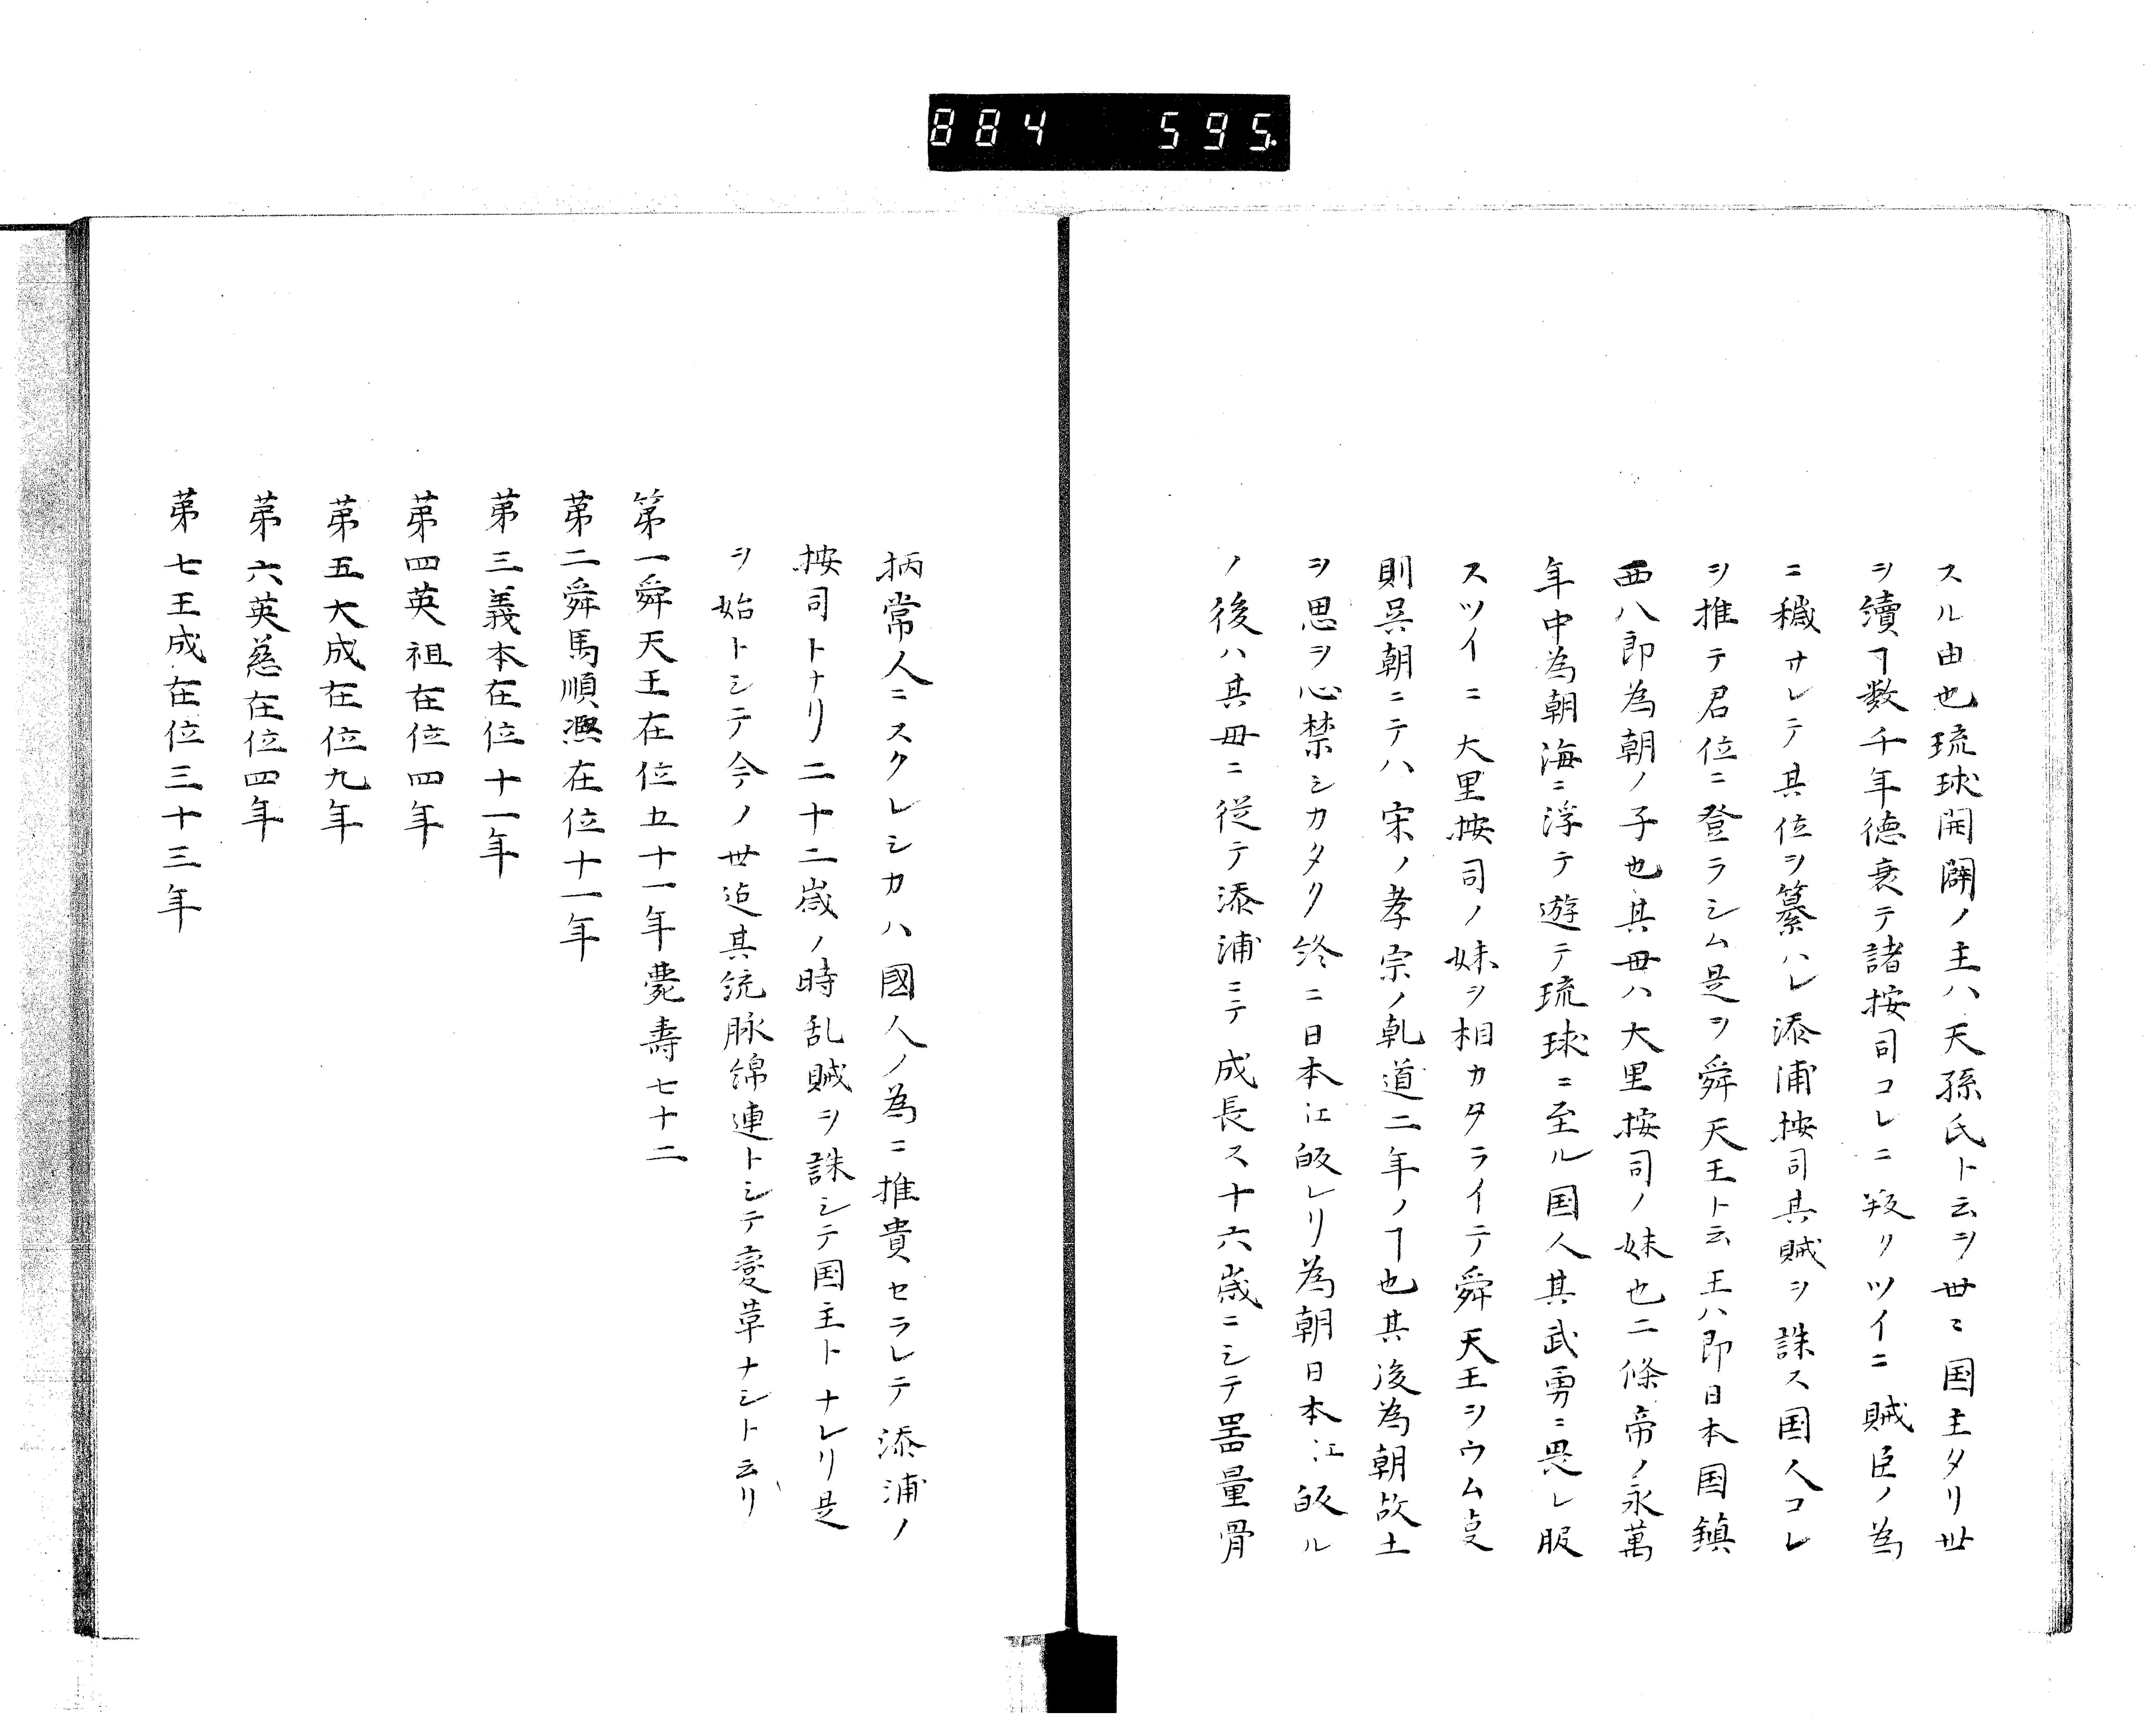 884 595
スル由也琉球開闢ノ主ハ天孫氏ト云ヲ世〻国主タリ世
ヲ續ヿ数千年徳衰テ諸按司コレニ叛リツイニ賊臣ノ為
ニ穢サレテ其位ヲ簒ハレ添浦按司其賊ヲ誅ス国人コレ
ヲ推テ君位ニ登ラシム是ヲ舜天王ト云王ハ即日本国鎮
西八郎為朝ノ子也其毌ハ大里按司ノ妹也二條帝ノ永萬
年中為朝海ニ浮テ遊テ琉球ニ至ル国人其武勇ニ畏レ服
スツイニ大里按司ノ妹ヲ相カタライテ舜天王ヲウム㕝
則呉朝ニテハ宋ノ孝宗ノ乹道二年ノヿ也其後為朝故土
ヲ思ヲ心禁シカタク終ニ日本江皈レリ為朝日本江皈ル
ノ後ハ其毌ニ従テ添浦ニテ成長ス十六歳ニシテ噐量骨
柄常人ニスクレシカハ國人ノ為ニ推貴セラレテ添浦ノ
按司トナリ二十二歳ノ時乱賊ヲ誅シテ国主トナレリ是
ヲ始トシテ今ノ世迠其統脉綿連トシテ変革ナシト云リ
第一舜天王在位五十一年薨壽七十二
苐二舜馬順凞在位十一年
苐三義本在位十一年
苐四英祖在位四年
苐五大成在位九年
苐六英慈在位四年
苐七王成在位三十三年